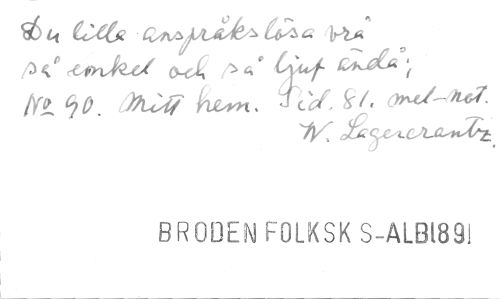 Du lilla anspråkslösa vrå
så enkel och så ljuf ändå;
No 90. Mitt hem. Sid. 81. mel-not.
W. Lagercrantz.
BRODEN FOLKSK S-ALB1891